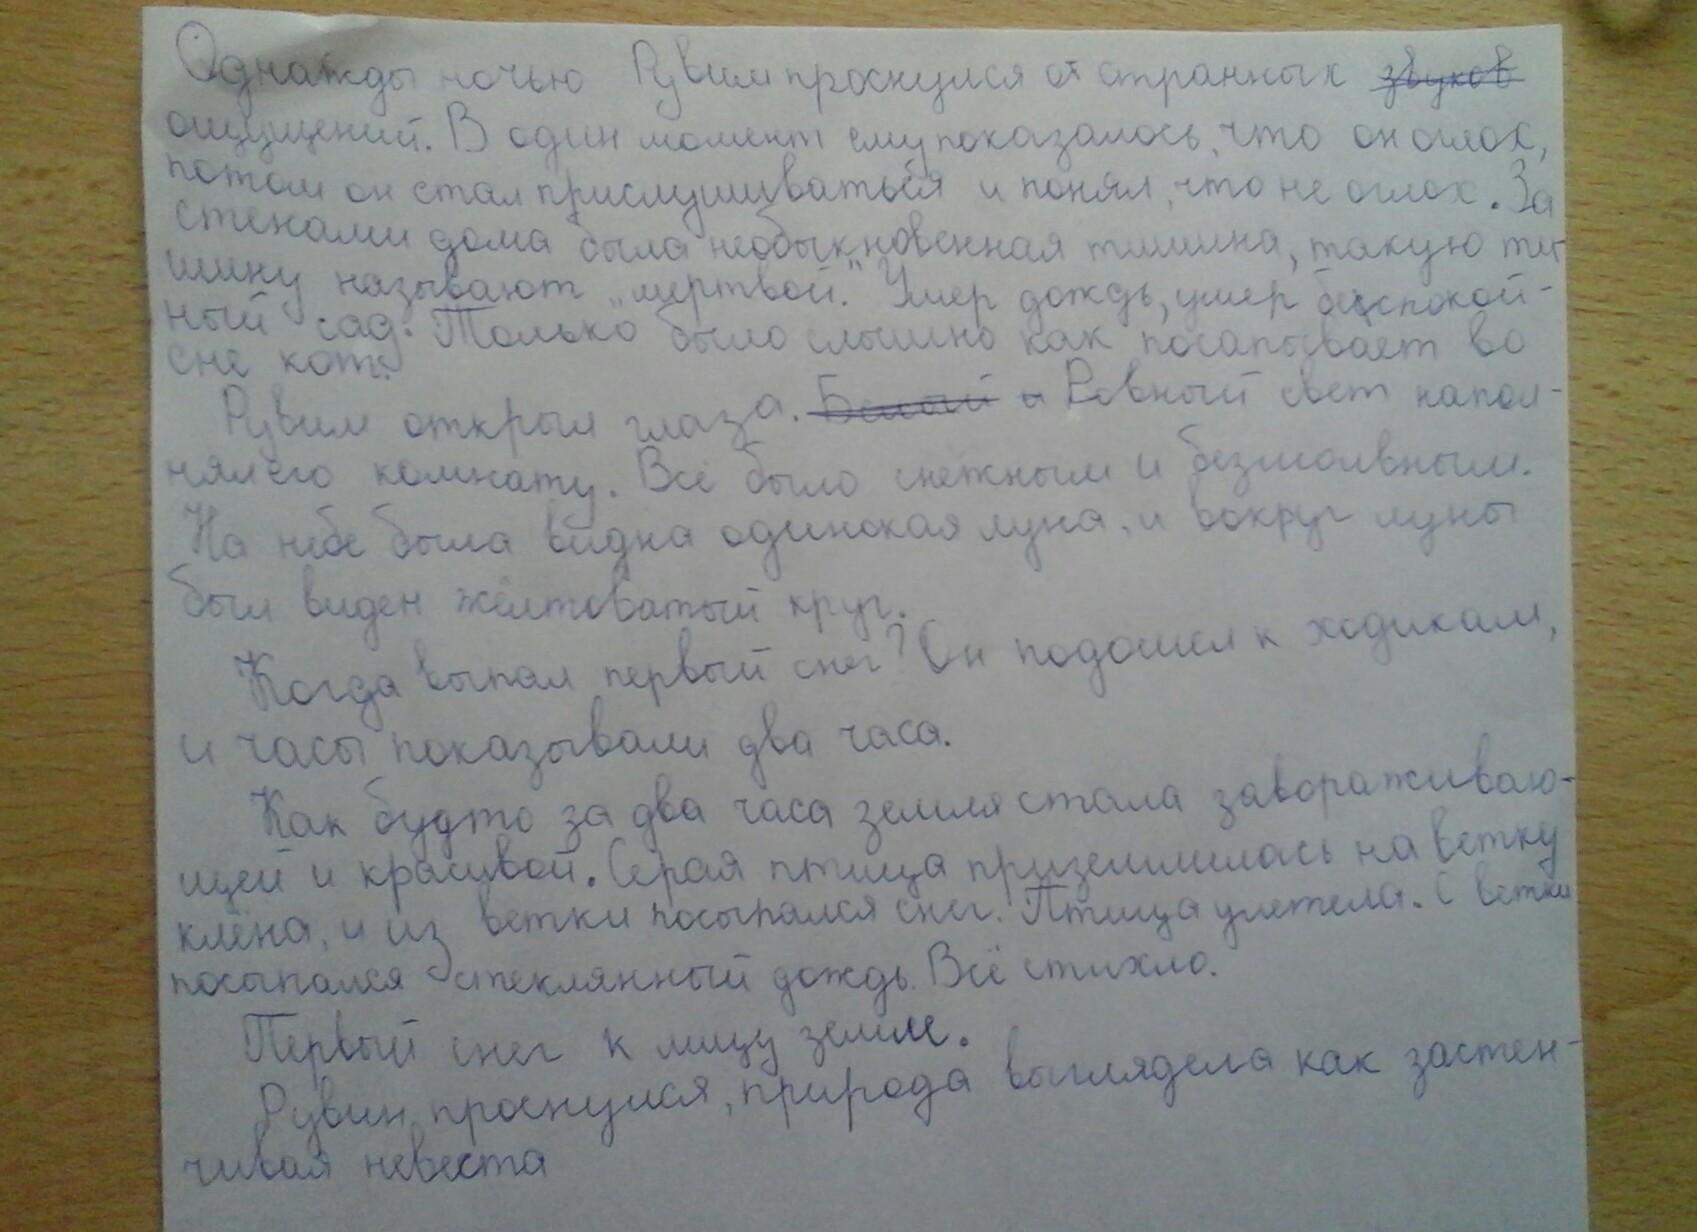 Однажды ночью Рувим проснулся от странных звуков
ощущений. В один момент ему показалось, что он оглох,
потом он стал прислушиваться и понял, что не оглох. За
стенами дома была необыкновенная тишина, такую ти-
шину называют „мертвой." Умер дождь, умер беспокой-
ный сад. Только было слышно как посапывает во
сне кот.
Рувим открыл глаза. Белый и Ровный свет напол-
нял его комнату. Всё было снежным и безмолвным.
На небе была видна одинокая луна, и вокруг луны
был виден желтоватый круг.
Когда выпал первый снег? Он подошел к ходикам,
и часы показывали два часа.
Как будто за два часа земля стала завораживаю-
щей и красивой. Серая птица приземлилась на ветку
клёна, и из ветки посыпался снег. Птица улетела. С ветки
посыпался стеклянный дождь. Всё стихло.
Первый снег к лицу земле.
Рувин проснулся, природа выглядела как застен-
чивая невеста